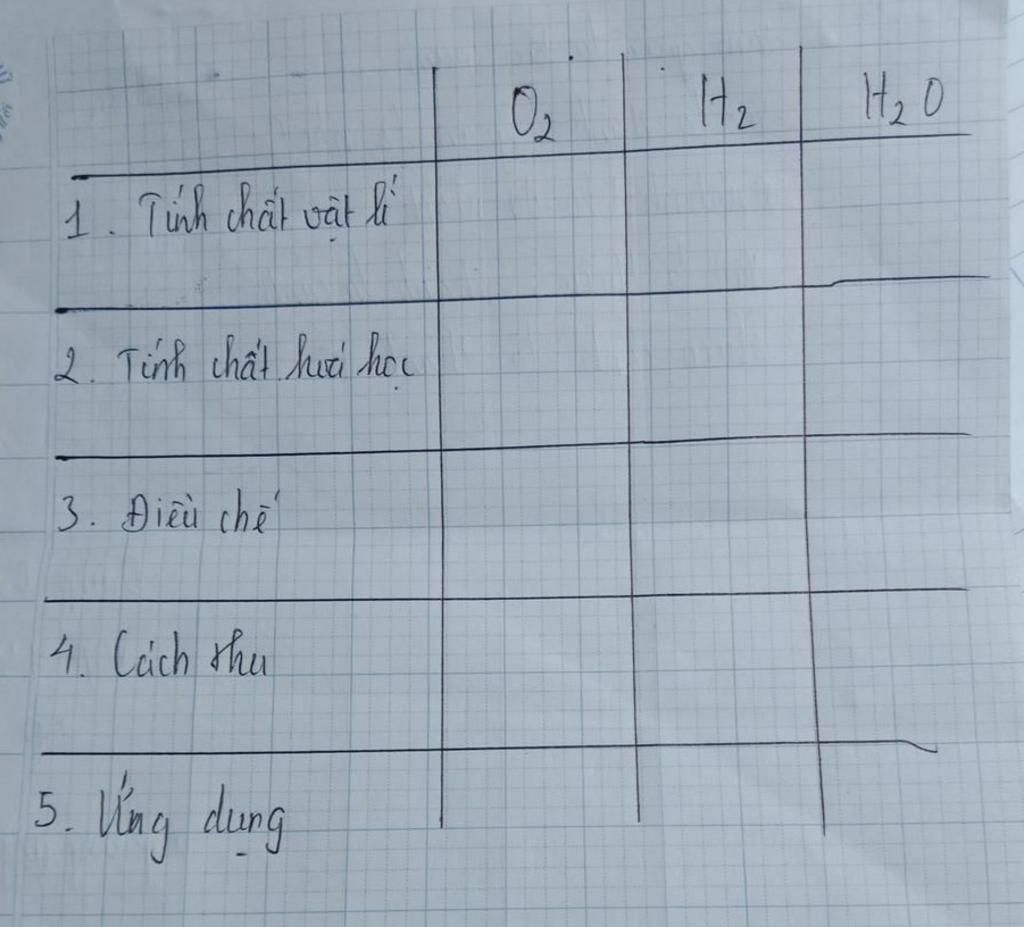 O₂ H₂ H₂O
1. Tính chất vật lí
2. Tính chất hoá học
3. Điều chế
4. Cách thu
5. Ứng dụng